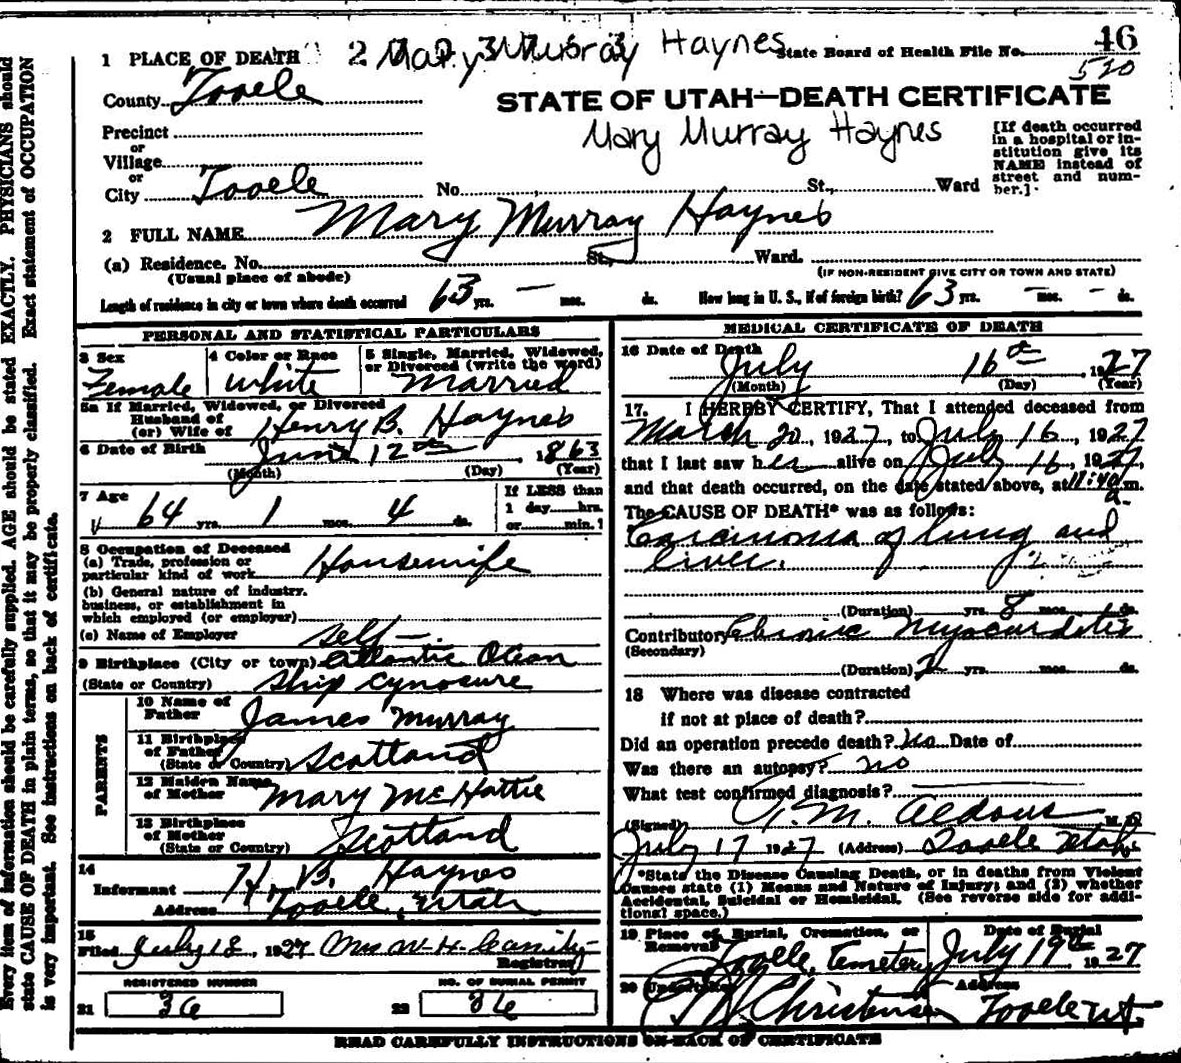 1 PLACE OF DEATH 2 Mary Murray Haynes State Board of Health File No. 46
County Tooele 520
STATE OF UTAH—DEATH CERTIFICATE
Mary Murray Haynes
[If death occurred in a hospital or institution give its NAME instead of street and number.]
Precinct
or
Village
or
City Tooele No. St., Ward
2 FULL NAME Mary Murray Haynes
(a) Residence. No. St., Ward.
(Usual place of abode) (IF NON-RESIDENT GIVE CITY OR TOWN AND STATE)
Length of residence in city or town where death occurred 63 yrs. — mos. ds. How long in U. S., if of foreign birth? 63 yrs. — mos. — ds.
PERSONAL AND STATISTICAL PARTICULARS
3 Sex Female
4 Color or Race White
5 Single, Married, Widowed, or Divorced (write the word) Married
5a If Married, Widowed, or Divorced
Husband of
(or) Wife of Henry B. Haynes
6 Date of Birth June 12th, 1863
(Month) (Day) (Year)
7 Age 64 yrs. 1 mos. 4 ds.
If LESS than
1 day hrs.
or min.?
8 Occupation of Deceased
(a) Trade, profession or
particular kind of work Housewife
(b) General nature of industry,
business, or establishment in
which employed (or employer)
(c) Name of Employer self —
9 Birthplace (City or town) Atlantic Ocean
(State or Country) Ship Cynosure
PARENTS
10 Name of Father James Murray
11 Birthplace of Father (State or Country) Scotland
12 Maiden Name of Mother Mary McHattie
13 Birthplace of Mother (State or Country) Scotland
14
Informant H. B. Haynes
Address Tooele, Utah
15
Filed July 18, 1927 Mrs W. H.
Registrar
REGISTERED NUMBER NO. OF BURIAL PERMIT
21 36 22 36
MEDICAL CERTIFICATE OF DEATH
16 Date of Death July 16th 1927
(Month) (Day) (Year)
17. I HEREBY CERTIFY, That I attended deceased from
March 20, 1927, to July 16, 1927
that I last saw her alive on July 16, 1927,
and that death occurred, on the date stated above, at 11:40 a. m.
The CAUSE OF DEATH* was as follows:
Carcinoma of lung and
liver.
(Duration) yrs. 8 mos. ds.
Contributory Chronic Myocarditis
(Secondary)
(Duration) 2 yrs. mos. ds.
18 Where was disease contracted
if not at place of death?
Did an operation precede death? No Date of
Was there an autopsy? no
What test confirmed diagnosis?
(Signed) M. Aldous M. D.
July 17 1927 (Address) Tooele Utah
*State the Disease Causing Death, or in deaths from Violent
Causes state (1) Means and Nature of Injury; and (2) whether
Accidental, Suicidal or Homicidal. (See reverse side for addi-
tional space.)
19 Place of Burial, Cremation, or Removal Tooele, Cemetery
Date of Burial July 19th 1927
20 Undertaker Christensen
Address Tooele Ut.
READ CAREFULLY INSTRUCTIONS ON BACK OF CERTIFICATE
Every item of information should be carefully supplied. AGE should be stated EXACTLY. PHYSICIANS should
state CAUSE OF DEATH in plain terms, so that it may be properly classified. Exact statement of OCCUPATION
is very important. See instructions on back of certificate.